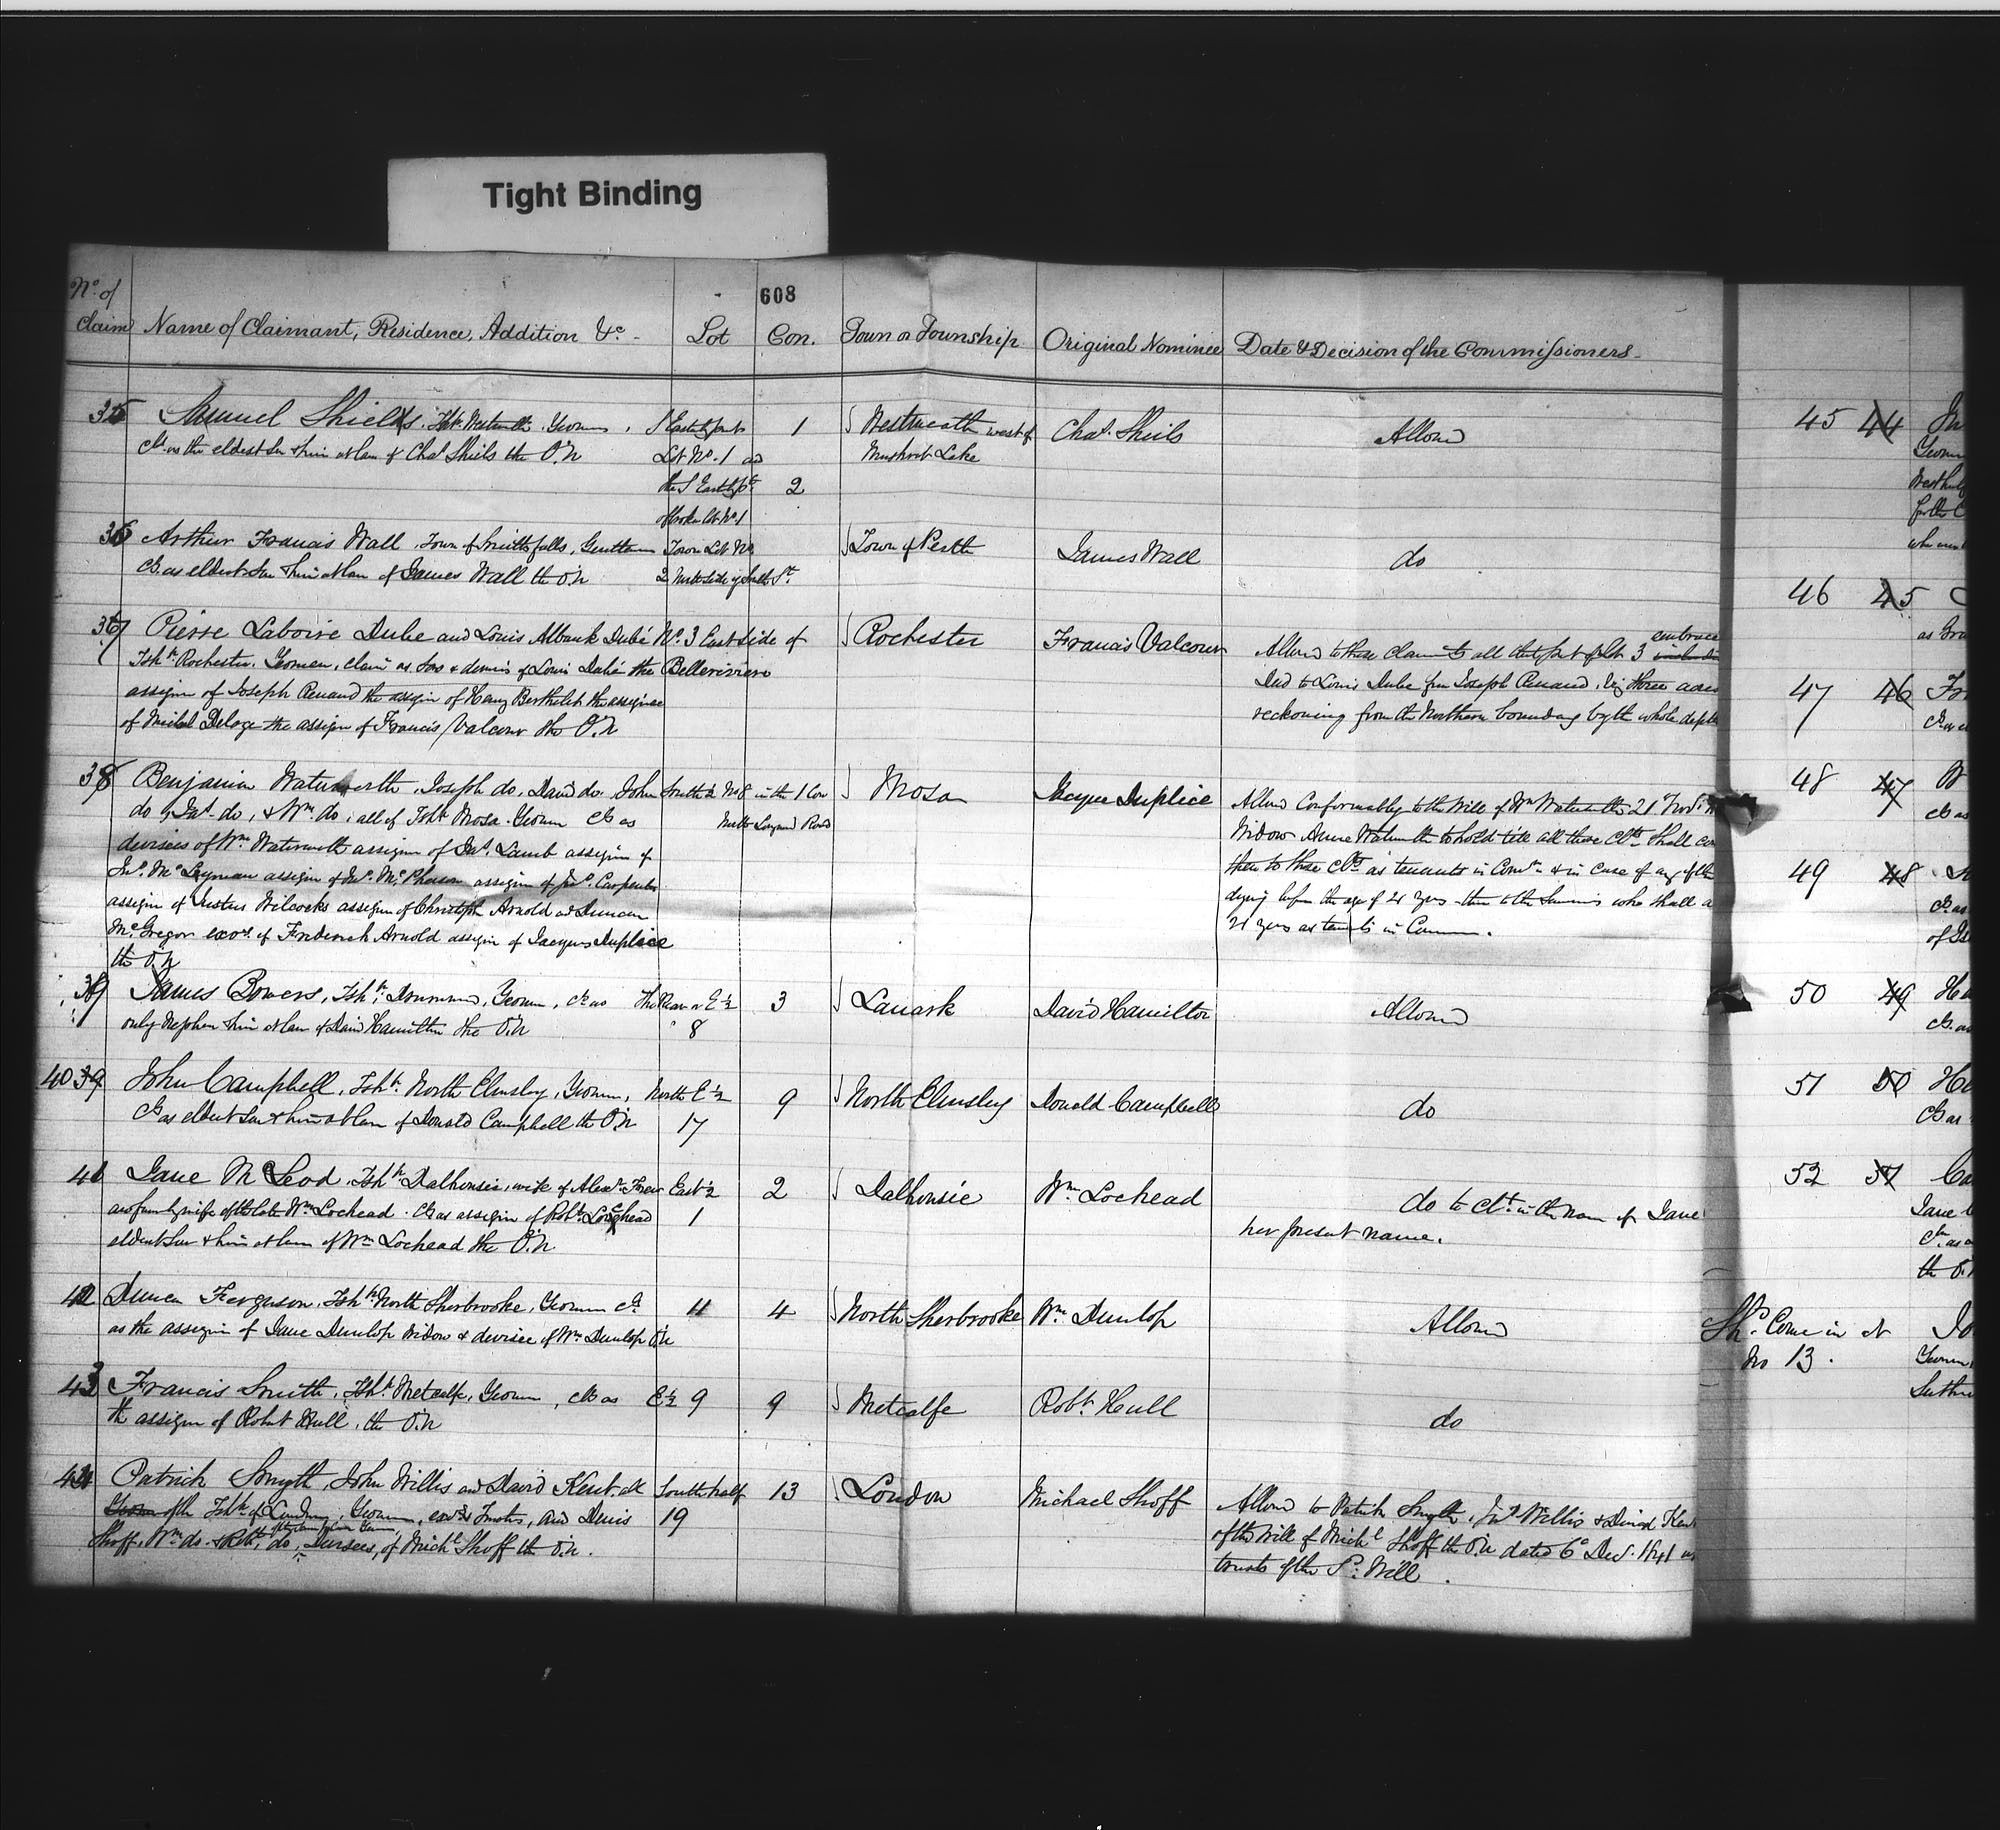 Tight Binding
608
No. of Claim Name of Claimant, Residence, Addition &c. - Lot Con. Town or Township Original Nominee Date & Decision of the Commissioners -
35 Samuel Shields, Yeoman, 1 Westmeath west of Chas. Sheils Allowed
as the eldest Son & heir at law of Chas Shiels the O.N Lot No. 1 and Muskrat Lake
the S Easterly pt 2
of broken lot No 1
36 Arthur Francis Wall, Town of Smiths falls, Gentleman Town Lot No Town of Perth James Wall do
as eldest Son & heir at law of James Wall the O.N 2 North side of South St.
37 Pierre Laboire Dube and Louis Albank Dubé No. 3 East side of Rochester Francis Valcour Allowed to these claimants all that part of Lot 3 embrace
Tshp. Rochester, Yeomen, claim as Sons & devisees of Louis Dubé the Belleriviere Deed to Louis Dube from Joseph Renaud, viz three acres
assignee of Joseph Renaud the assignee of Henry Berthelet the assignee reckoning from the Northern boundary by the whole depth
of Michel Deloge the assignee of Francis Valcour the O.N
38 Benjamin Waterworth, Joseph do, David do, John South ½ No 8 in the 1 Con Mosa Jacques Duplice Allowed Conformably to the Will of Wm
do, Jas. do, & Wm. do, all of Tshp Mosa Yeomen as North Longwood Road Widow Anne to hold till all these clts shall
devisees of Wm. Waterworth assignee of Jas. Lamb assignee of then to these clts as tenants in Common & in case of any of them
Jno. McLayman assignee of Jno. McPherson assignee of Jno. Carpenter dying before the age of 21 years then to the Survivors who shall a
assignee of Justus Wilcocks assignee of Christoph Arnold and Duncan 21 years as tenants in Common.
McGregor exors. of Frederick Arnold assignee of Jacques Duplice
the O.N
39 James Bowers, Tshp. Drummond, Yeoman, as The Rear or E ½ 3 Lanark David Hamilton Allowed
only Nephew & heir at law of David Hamilton the O.N 8
40 39 John Campbell, Tshp. North Elmsley, Yeoman, North E ½ 9 North Elmsley Donald Campbell do
as eldest Son & heir at law of Donald Campbell the O.N 17
41 Jane McLeod, Tshp Dalhousie, wife of Alexr. East ½ 2 Dalhousie Wm. Lochead do to Clt. in the name of Jane
as formerly wife of the late Wm Lochead. as assignee of Robt. Lochead 1 her present name.
eldest Son & heir at law of Wm Lochead the O.N
42 Duncan Ferguson, Tshp North Sherbrooke, Yeoman 11 4 North Sherbrooke Wm. Dunlop Allowed
as the assignee of Jane Dunlop Widow & devisee of Wm Dunlop O.N
43 Francis Smith, Tshp Metcalfe, Yeoman, as E ½ 9 9 Metcalfe Robt. Hull do
the assignee of Robert Hull, the O.N
44 Patrick Smyth, John Willis and David Kent all South half 13 London Michael Shoff Allowed to Patrick Smyth, Jno Willis & David Kent
of the Tshp of London, Yeomen, exors & Trustees, and Denis 19 of the Will of Michl Shoff the O.N dated 6th Dec.
Shoff, Wm do & Robt. do, Devisees, of Michl Shoff the O.N. trusts of the Sd. Will.
45 44
46 45
47 46
48 47
49 48
50 49
51 50
52 51
Come in at
No 13.